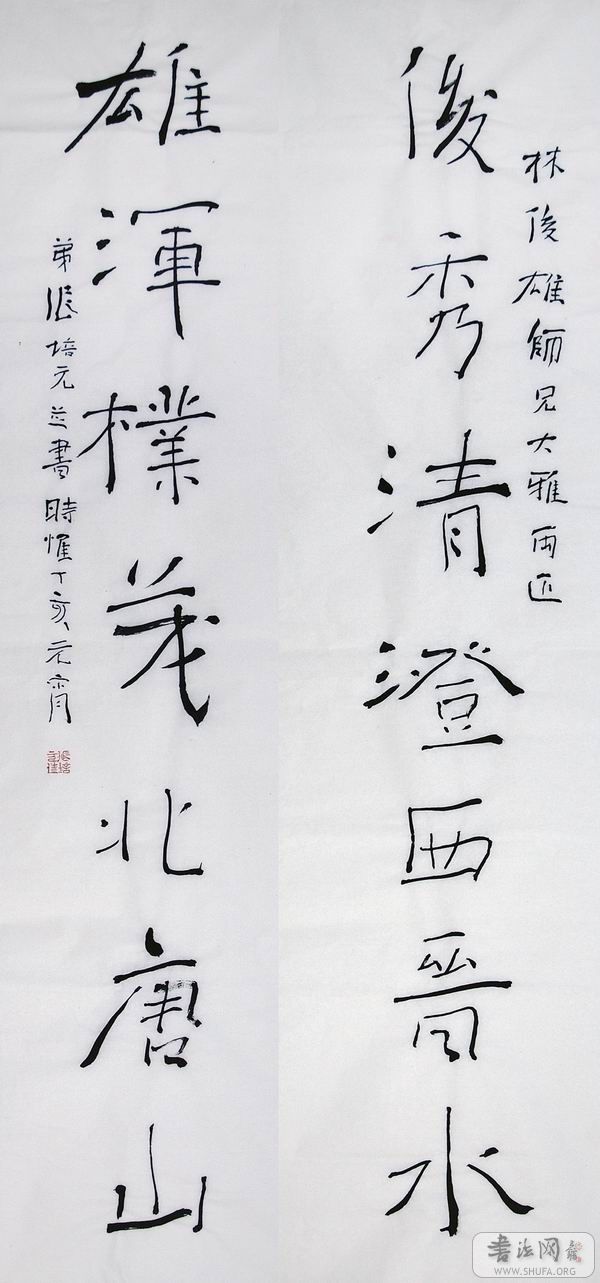 林俊雄師兄大雅
俊秀清澄西晉水
雄渾樸茂北唐山
弟張培元並書時惟丁亥元宵
書法网
WWW.SHUFA.ORG